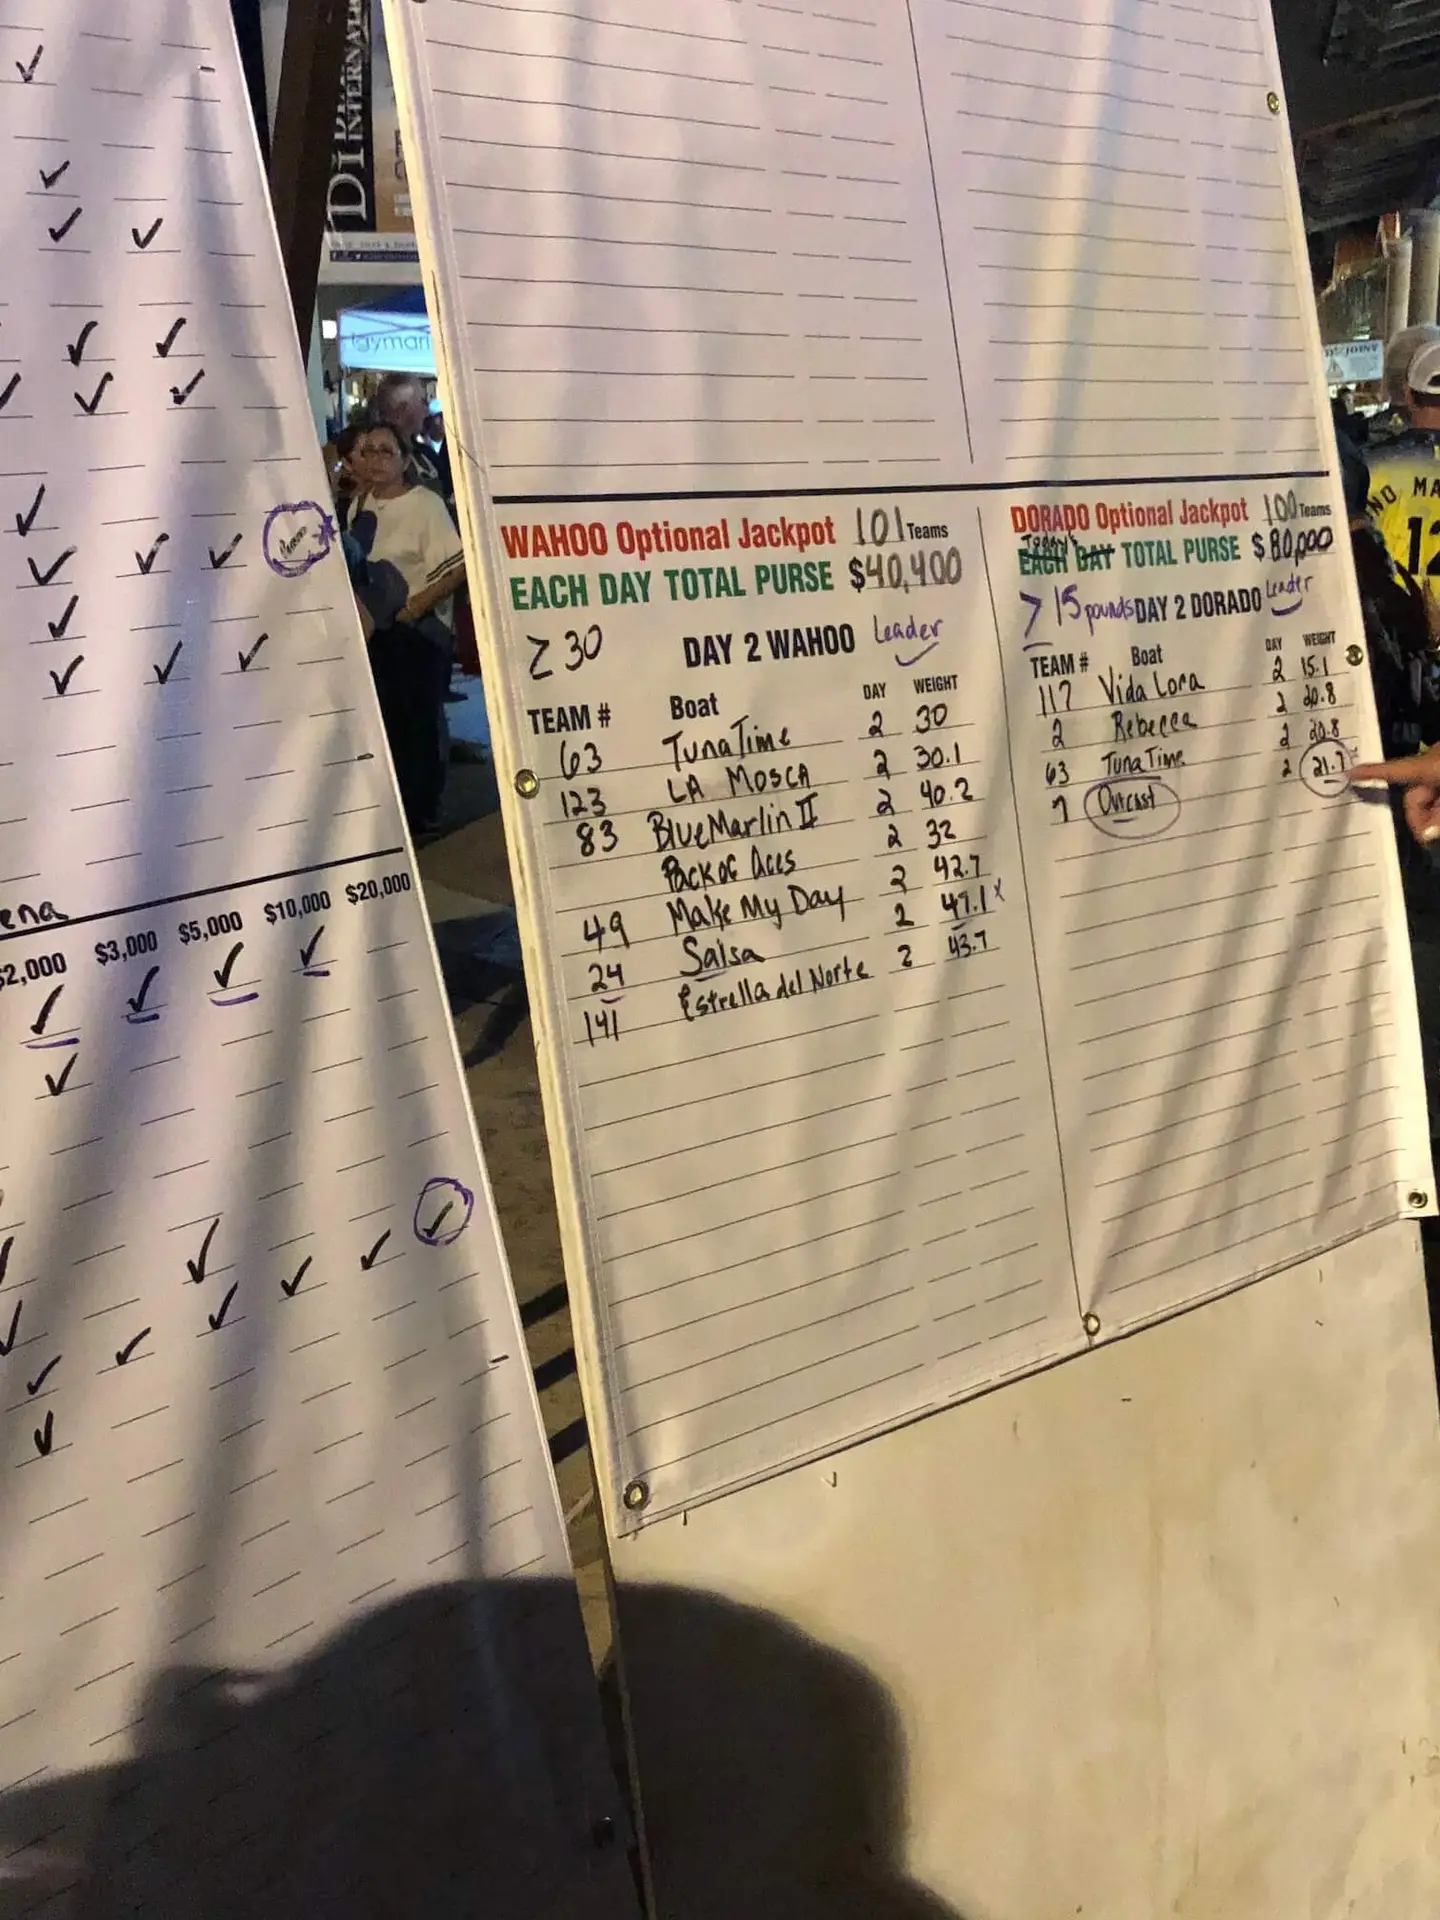 INTERNATI
Igymari
ena
$2,000 $3,000 $5,000 $10,000 $20,000
WAHOO Optional Jackpot 101 Teams
EACH DAY TOTAL PURSE $40,400
≥ 30 DAY 2 WAHOO Leader
TEAM # Boat DAY WEIGHT
63 Tuna Time 2 30
123 LA MOSCA 2 30.1
83 Blue Marlin II 2 40.2
Pack of Aces 2 32
49 Make My Day 2 42.7
24 Salsa 2 47.1 x
141 Estrella del Norte 2 43.7
DORADO Optional Jackpot 100 Teams
Today's
EACH DAY TOTAL PURSE $80,000
≥ 15 pounds DAY 2 DORADO Leader
TEAM # Boat DAY WEIGHT
117 Vida Lora 2 15.1
2 Rebecca 2 20.8
63 Tuna Time 2 20.8
7 Outcast 2 21.7
NO MA
12